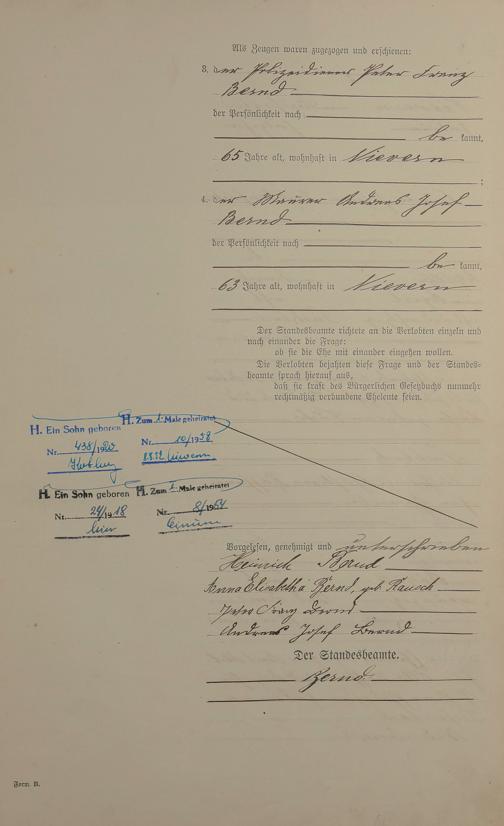 Als Zeugen waren zugezogen und erschienen:
3. der Polizeidiener Peter Franz
Bernd
der Persönlichkeit nach
be kannt,
65 Jahre alt, wohnhaft in Nievern
;
4. der Maurer Andreas Josef
Bernd
der Persönlichkeit nach
be kannt,
63 Jahre alt, wohnhaft in Nievern
Der Standesbeamte richtete an die Verlobten einzeln und
nach einander die Frage:
ob sie die Ehe mit einander eingehen wollen.
Die Verlobten bejahten diese Frage und der Standes-
beamte sprach hierauf aus,
daß sie kraft des Bürgerlichen Gesetzbuchs nunmehr
rechtmäßig verbundene Eheleute seien.
H. Ein Sohn geboren
Nr. 438/1920
H. Zum 1. Male geheiratet
Nr. 10/1938
H. Ein Sohn geboren
Nr. 24/1918
hier
H. Zum I. Male geheiratet
Nr. 8/1954
Vorgelesen, genehmigt und unterschrieben
Heinrich Bernd
Anna Elisabetha Bernd, geb. Rausch
Peter Franz Bernd
Andreas Josef Bernd
Der Standesbeamte.
Bernd
Form. B.